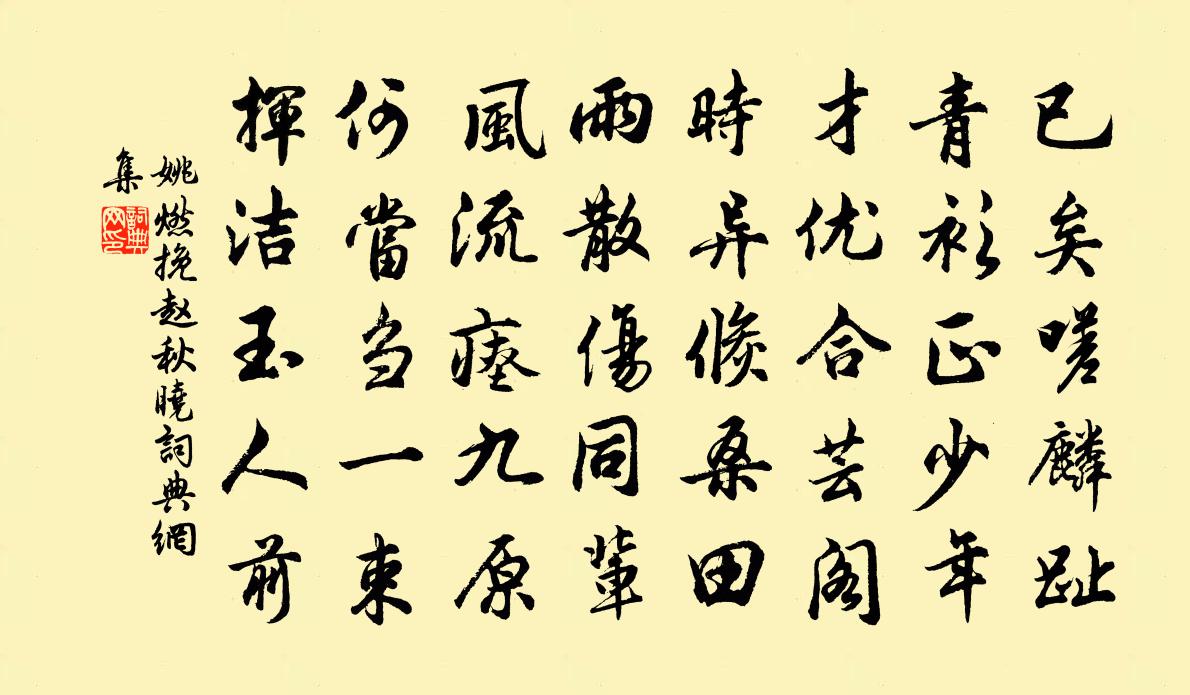 已矣嗟麟趾
青衫正少年
才优合芸阁
時异倐桑田
雨散傷同輩
風流瘗九原
何當刍一束
揮洁玉人前
姚燃挽赵秋曉詞典網
集
詞典
网印